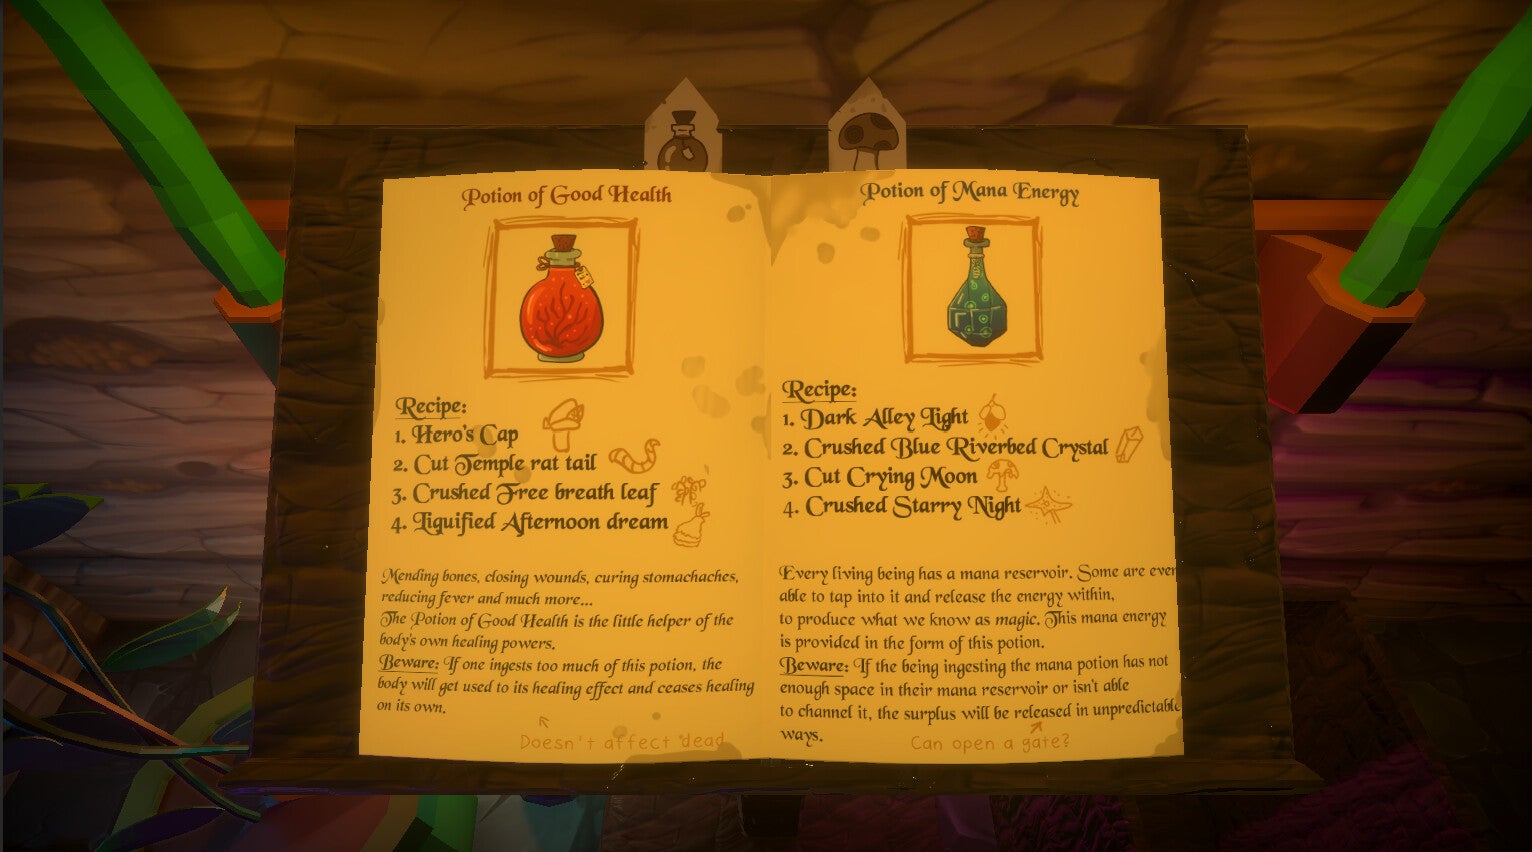 Potion of Good Health
Recipe:
1. Hero's Cap
2. Cut Temple rat tail
3. Crushed Free breath leaf
4. Liquified Afternoon dream
Mending bones, closing wounds, curing stomachaches,
reducing fever and much more...
The Potion of Good Health is the little helper of the
body's own healing powers.
Beware: If one ingests too much of this potion, the
body will get used to its healing effect and ceases healing
on its own.
Doesn't affect dead
Potion of Mana Energy
Recipe:
1. Dark Alley Light
2. Crushed Blue Riverbed Crystal
3. Cut Crying Moon
4. Crushed Starry Night
Every living being has a mana reservoir. Some are ever
able to tap into it and release the energy within,
to produce what we know as magic. This mana energy
is provided in the form of this potion.
Beware: If the being ingesting the mana potion has not
enough space in their mana reservoir or isn't able
to channel it, the surplus will be released in unpredictable
ways.
Can open a gate?